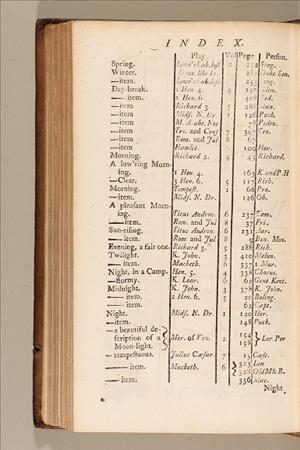 INDEX.
Play. Vol Page Person.
Spring. Love's l. ab. lost 2 Song.
Winter. As you like it.
—item. Love's l. ab. lost
Day-break. 1 Hen. 4. 4 Glen.
—item. 1 Hen. 6.
—item Richard 3. 5 Stan.
—item Mids. N. Dr. 1 126 Puck.
—item M. A. abt. No. Pedro.
—item Tro. and Cres 7 Tro.
—item Rom. and Jul 8
—item Hamlet. Hor.
Morning. Richard 2. 4 Richard.
A low'ring Morning. 1 Hen. 4. 163 K. and P. H
—Clear. 3 Hen. 6. 5 Rich.
Morning. Tempest. 1 68 Pro.
—item. Mids. N. Dr. 126 Ob.
A pleasant Morning. Titus Andron. 6 237 Tam.
—item. Rom. and Jul 8 37 Fri.
Sun-rising. Titus Andron. 6 231 Aar.
—item. Rom and Jul 8 9 Ben. Mon.
Evening, a fair one. Richard 3. 5 286 Rich.
Twilight. K. John. 3 410 Melun.
—item. Macbeth. 6 337 1 Mur.
Night, in a Camp. Hen. 5. 4 338 Chorus.
—stormy. K. Lear. 6 62 Gent. Kent.
Midnight. K. John. 3 378 K. John.
—item. 2 Hen. 6. 5 20 Boling.
—item. 62 Capt.
Night. Mids. N. Dr 1 120 Her.
—item. 148 Puck.
—a beautiful description of a Moon-light. Mer. of Ven. 2 154 158 Lor. Por
—tempestuous. Julius Cæsar 7 15 Casc.
—item. Macbeth. 6 325 Len
328 Old M & R.
—item. 336 Mac.
Night